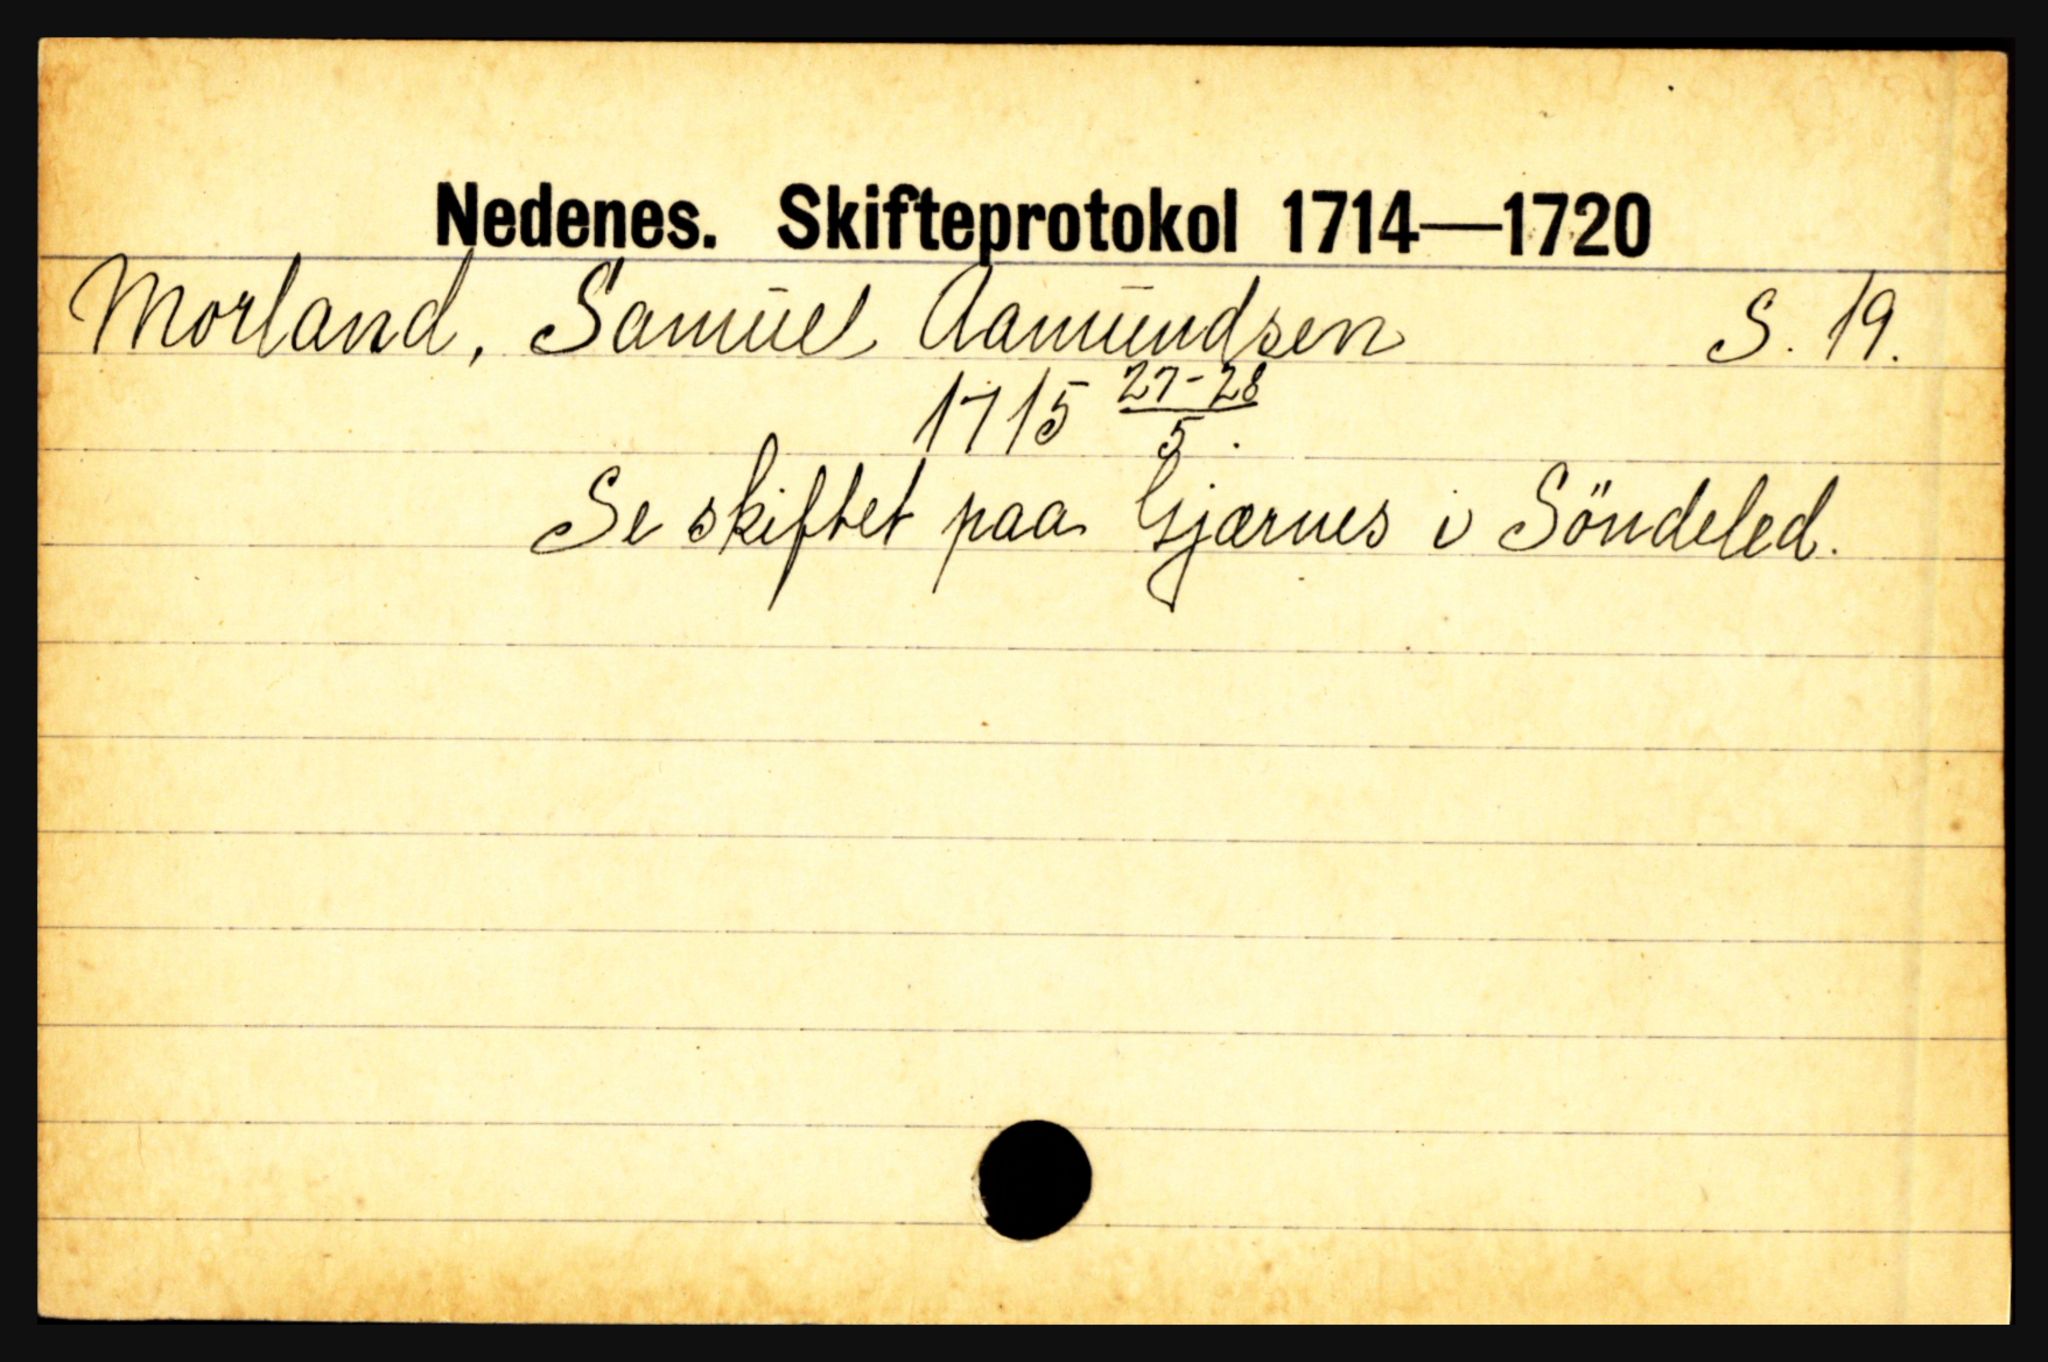 Nedenes. Skifteprotokol 1714—1720
Morland, Samuel Aamundsen S. 19.
1715 27-28/5.
Se skiftet paa Gjærnes i Söndeled.